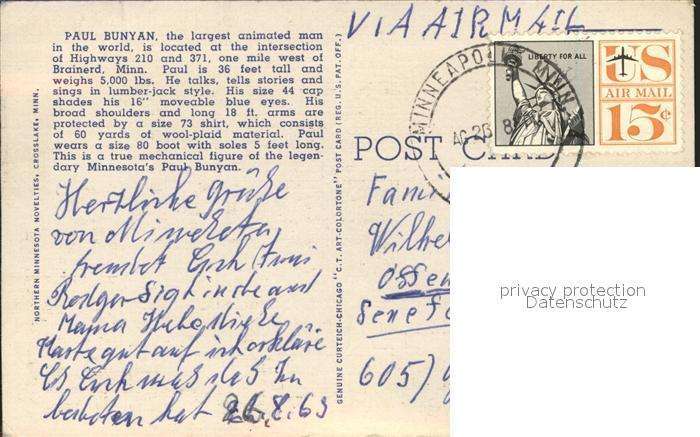 VIA AIR MAIL
PAUL BUNYAN, the largest animated man
in the world, is located at the intersection
of Highways 210 and 371, one mile west of
Brainerd, Minn. Paul is 36 feet tall and
weighs 5,000 lbs. He talks, tells stories and
sings in lumber-jack style. His size 44 cap
shades his 16" moveable blue eyes. His
broad shoulders and long 18 ft. arms are
protected by a size 73 shirt, which consists
of 60 yards of wool-plaid material. Paul
wears a size 80 boot with soles 5 feet long.
This is a true mechanical figure of the legen-
dary Minnesota's Paul Bunyan.
NORTHERN MINNESOTA NOVELTIES, CROSSLAKE, MINN.
Herzliche Grüße
von
Euch
und
Mama
Karte gut auf ich erkläre
Euch was das
hat 26.8.63
GENUINE CURTEICH-CHICAGO "C.T. ART-COLORTONE" POST CARD (REG. U.S. PAT. OFF.)
MINNEAPOLIS MINN.
LIBERTY FOR ALL
US
AIR MAIL
15¢
POST CARD
Fam
Wilhe
Ossen
Senef
605)
privacy protection
Datenschutz